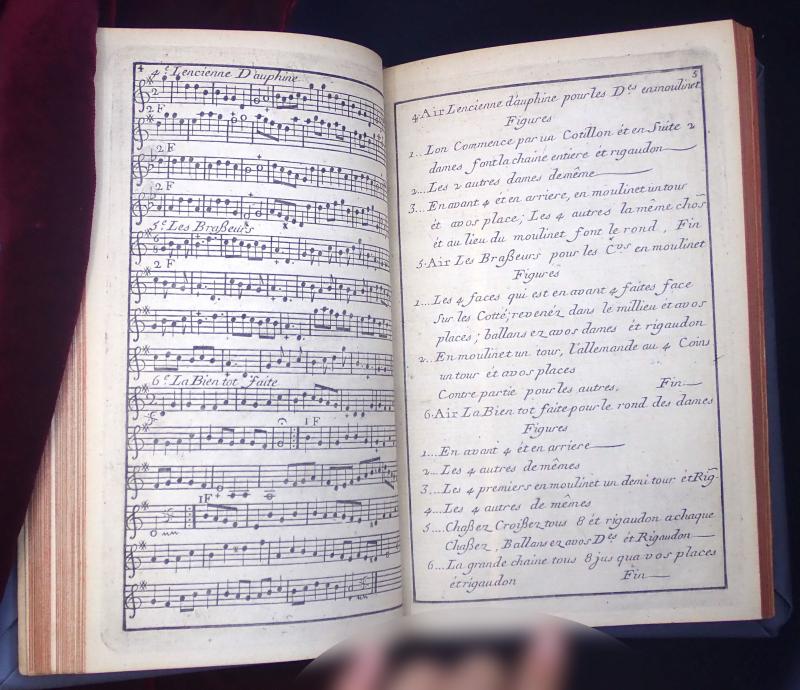 4
4.e Lencienne D'auphine
2 F
2 F
2 F
5.e Les Braßeurs
2 F
6.e La Bien tot faite
1 F
1F
5
4.Air Lencienne d'auphine pour les D.es en moulinet
Figures
1... Lon Commence par un Cotillon ét en Suite 2
dames font la chaine entiere ét rigaudon
2... Les 2 autres dames demême
3... En avant 4 ét en arriere, en moulinet un tour
ét avos place; Les 4 autres la même chos
ét au lieu du moulinet font le rond, Fin
5.Air Les Braßeurs pour les C.rs en moulinet
Figures
1... Les 4 faces qui est en avant 4 faites face
Sur les Cotté; revenéz dans le millieu ét avos
places; ballans ez avos dames ét rigaudon
2... En moulinet un tour, l'allemande au 4 Coins
un tour ét avos places
Contre partie pour les autres. Fin
6.Air La Bien tot faite pour le rond des dames
Figures
1... En avant 4 ét en arriere
2... Les 4 autres de mêmes
3... Les 4 premiers en moulinet un demi tour ét Rig
4... Les 4 autres de mêmes
5... Chaßez Croißez tous 8 ét rigaudon a chaque
Chaßez, Ballans ez avos D.es ét Rigaudon
6... La grande chaine tous 8 jus qua vos places
ét rigaudon Fin